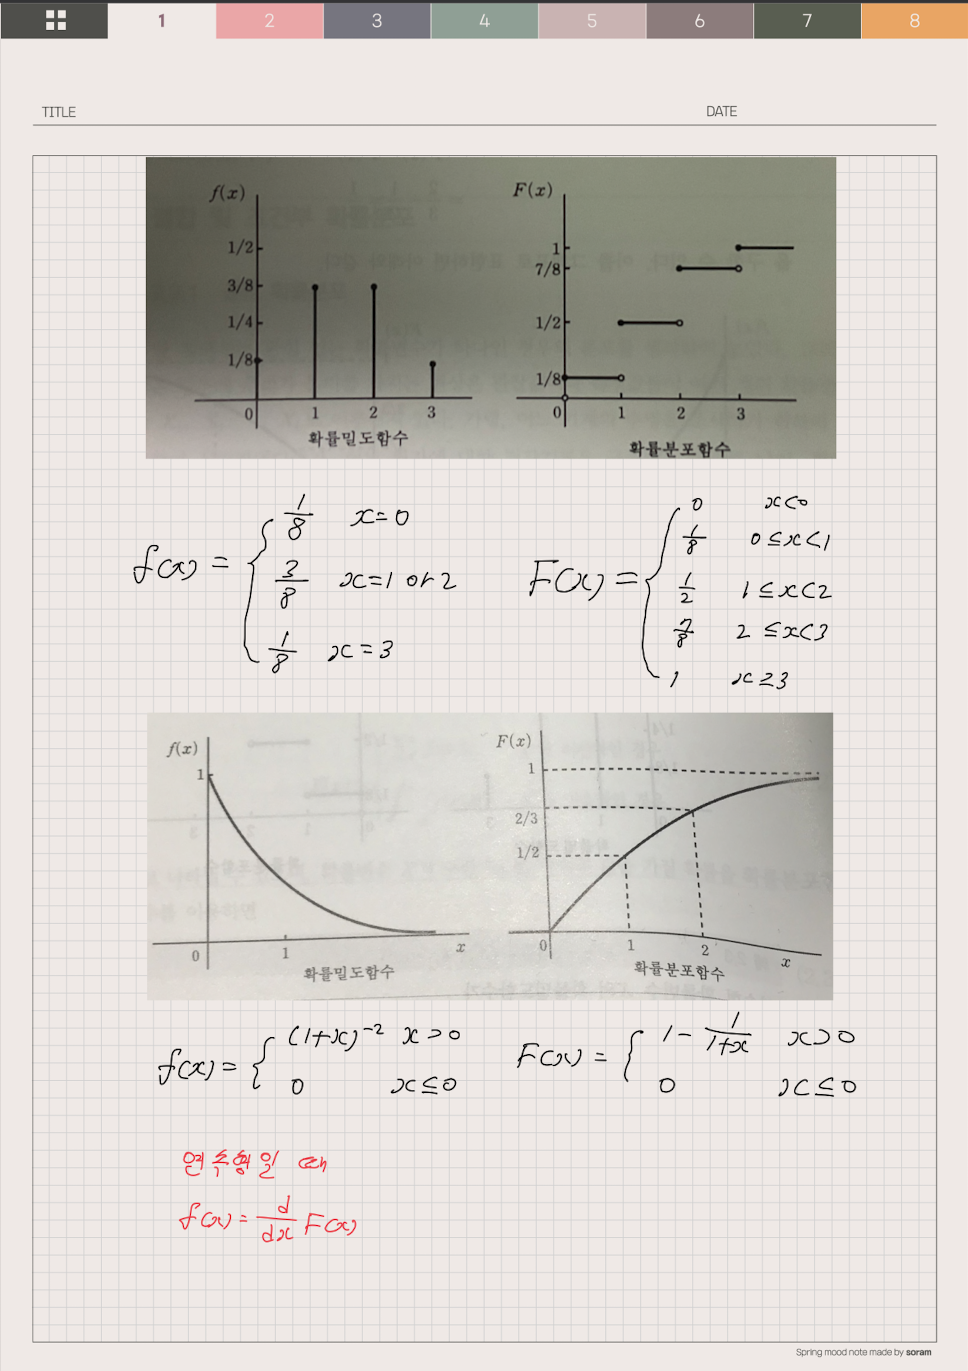 1 2 3 4 5 6 7 8
TITLE DATE
f(x)
1/2
3/8
1/4
1/8
0 1 2 3
확률밀도함수
F(x)
1
7/8
1/2
1/8
0 1 2 3
확률분포함수
f(x) = { 1/8 x=0
3/8 x=1 or 2
1/8 x=3
F(x) = { 0 x<0
1/8 0≤x<1
1/2 1≤x<2
7/8 2≤x<3
1 x≥3
f(x)
1
0 1 x
확률밀도함수
F(x)
1
2/3
1/2
0 1 2 x
확률분포함수
f(x) = { (1+x)⁻² x>0
0 x≤0
F(x) = { 1 - 1/1+x x>0
0 x≤0
연속형일 때
f(x) = d/dx F(x)
Spring mood note made by soram